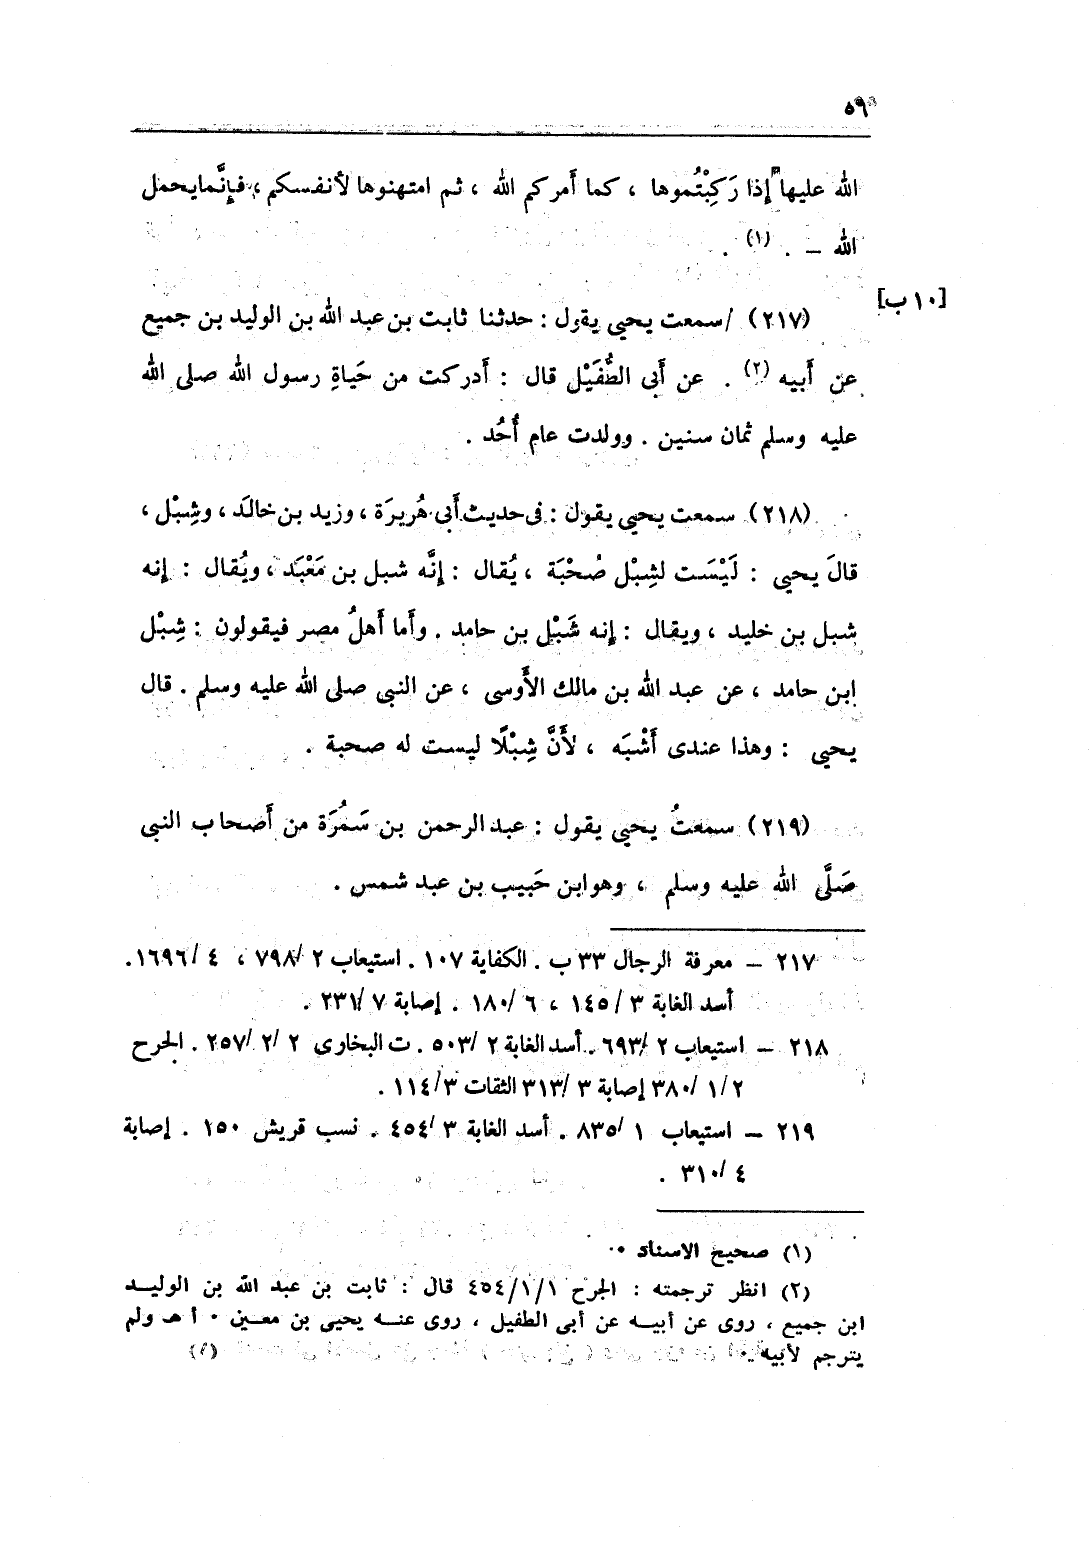 ٥٩
الله عليها إذا رَكِبْتُموها ، كما أَمركم الله ، ثم امتهنوها لأنفسكم ، فإِنَّمايحمل
الله – . (١) .
[١٠ ب]
(٢١٧) /سمعت يحيى يقول : حدثنا ثابت بن عبد الله بن الوليد بن جميع
عن أَبيه (٢) . عن أَبى الطُّفَيْل قال : أَدركت من حَياةِ رسول الله صلى الله
عليه وسلم ثمان سنين . وولدت عام أُحُد .
(٢١٨) سمعت يحيى يقول : فى حديث أَبى هُريرَة ، وزيد بن خالد ، وشِبْل ،
قالَ يحيى : لَيْسَت لشِبْل صُحْبَة ، يُقال : إنَّه شبل بن مَعْبَد ، ويُقال : إنه
شبل بن خليد ، ويقال : إنه شَبْل بن حامد . وأَما أَهلُ مصر فيقولون : شِبْل
ابن حامد ، عن عبد الله بن مالك الأَوسى ، عن النبى صلى الله عليه وسلم . قال
يحيى : وهذا عندى أَشْبَه ، لأَنَّ شِبْلًا ليست له صحبة .
(٢١٩) سمعتُ يحيى يقول : عبد الرحمن بن سَمُرَة من أَصحاب النبى
صَلَّى الله عليه وسلم ، وهو ابن حَبيب بن عبد شمس .
٢١٧ – معرفة الرجال ٣٣ ب . الكفاية ١٠٧ . استيعاب ٢ /٧٩٨ ، ٤ /١٦٩٦ .
أسد الغابة ٣ /١٤٥ ، ٦ /١٨٠ . إصابة ٧ /٢٣١ .
٢١٨ – استيعاب ٢ /٦٩٣ . أسد الغابة ٢ /٥٠٣ . ت البخارى ٢ /٢ /٢٥٧ . الجرح
٢ /١ /٣٨٠ إصابة ٣ /٣١٣ الثقات ٣ /١١٤ .
٢١٩ – استيعاب ١ /٨٣٥ . أسد الغابة ٣ /٤٥٤ . نسب قريش ١٥٠ . إصابة
٤ /٣١٠ .
(١) صحيح الاسناد .
(٢) انظر ترجمته : الجرح ١/١/٤٥٤ قال : ثابت بن عبد الله بن الوليد
ابن جميع ، روى عن أبيه عن أبى الطفيل ، روى عنه يحيى بن معين . أ هـ ولم
يترجم لأبيه .